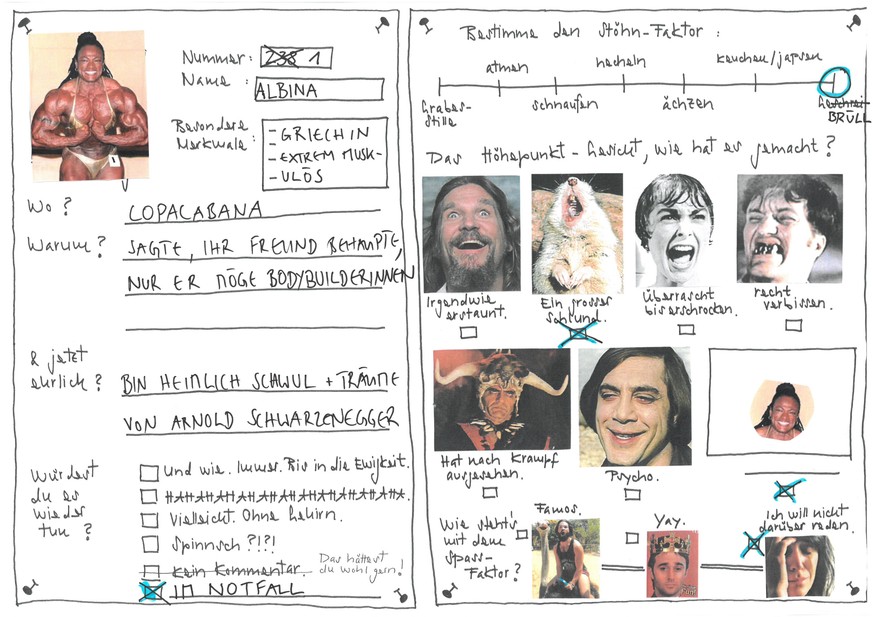 Nummer: 238 1
Name : ALBINA
Besondere
Merkmale :
- GRIECHIN
- EXTREM MUSK-
- ULÖS
1
Wo? COPACABANA
Warum? SAGTE, IHR FREUND BEHAUPTE,
NUR ER MÖGE BODYBUILDERINNEN
& jetzt
ehrlich? BIN HEIMLICH SCHWUL + TRÄUME
VON ARNOLD SCHWARZENEGGER
Würdest
du es
wieder
tun?
Und wie. Immer. Bis in die Ewigkeit.
Vielleicht. Ohne Gehirn.
Spinnsch?!?!
Kein Kommentar. Das hättest
du wohl gern!
IM NOTFALL
Bestimme den Stöhn-Faktor :
atmen hecheln keuchen/japsen
Grabes-
stille
schnaufen ächzen
Geschrei
BRÜLL
Das Höhepunkt-Gesicht, wie hat er gemacht?
Irgendwie
erstaunt.
Ein grosser
Schlund.
Überrascht
bis erschrocken.
recht
verbissen.
Hat nach Krampf
ausgesehen.
Psycho.
Wie steht's
mit dem
Spass-
Faktor?
Famos.
Yay.
Ich will nicht
darüber reden.